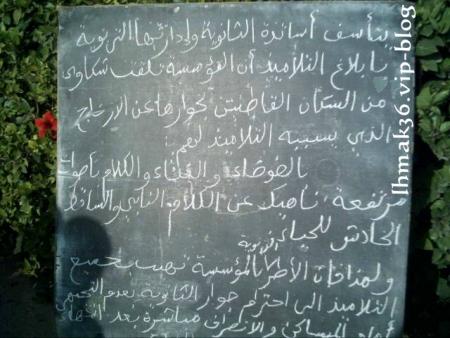 يتأسف أساتذة الثانوية وإدارتها التربوية
بإبلاغ التلاميذ أن المؤسسة تلقت شكاوى
من السكان القاطنين بجوارها عن الازعاج
الذي يسببه التلاميذ لهم:
بالضوضاء والغناء والكلام بأصوات
مرتفعة، ناهيك عن الكلام النابي والساقط
الخادش للحياء
ولهذا فان الأطر التربوية بالمؤسسة تهيب بجميع
التلاميذ الى احترام جوار الثانوية بعدم التجمهر
أمام المساكن والانصراف مباشرة بعد
lhmak36.vip-blog